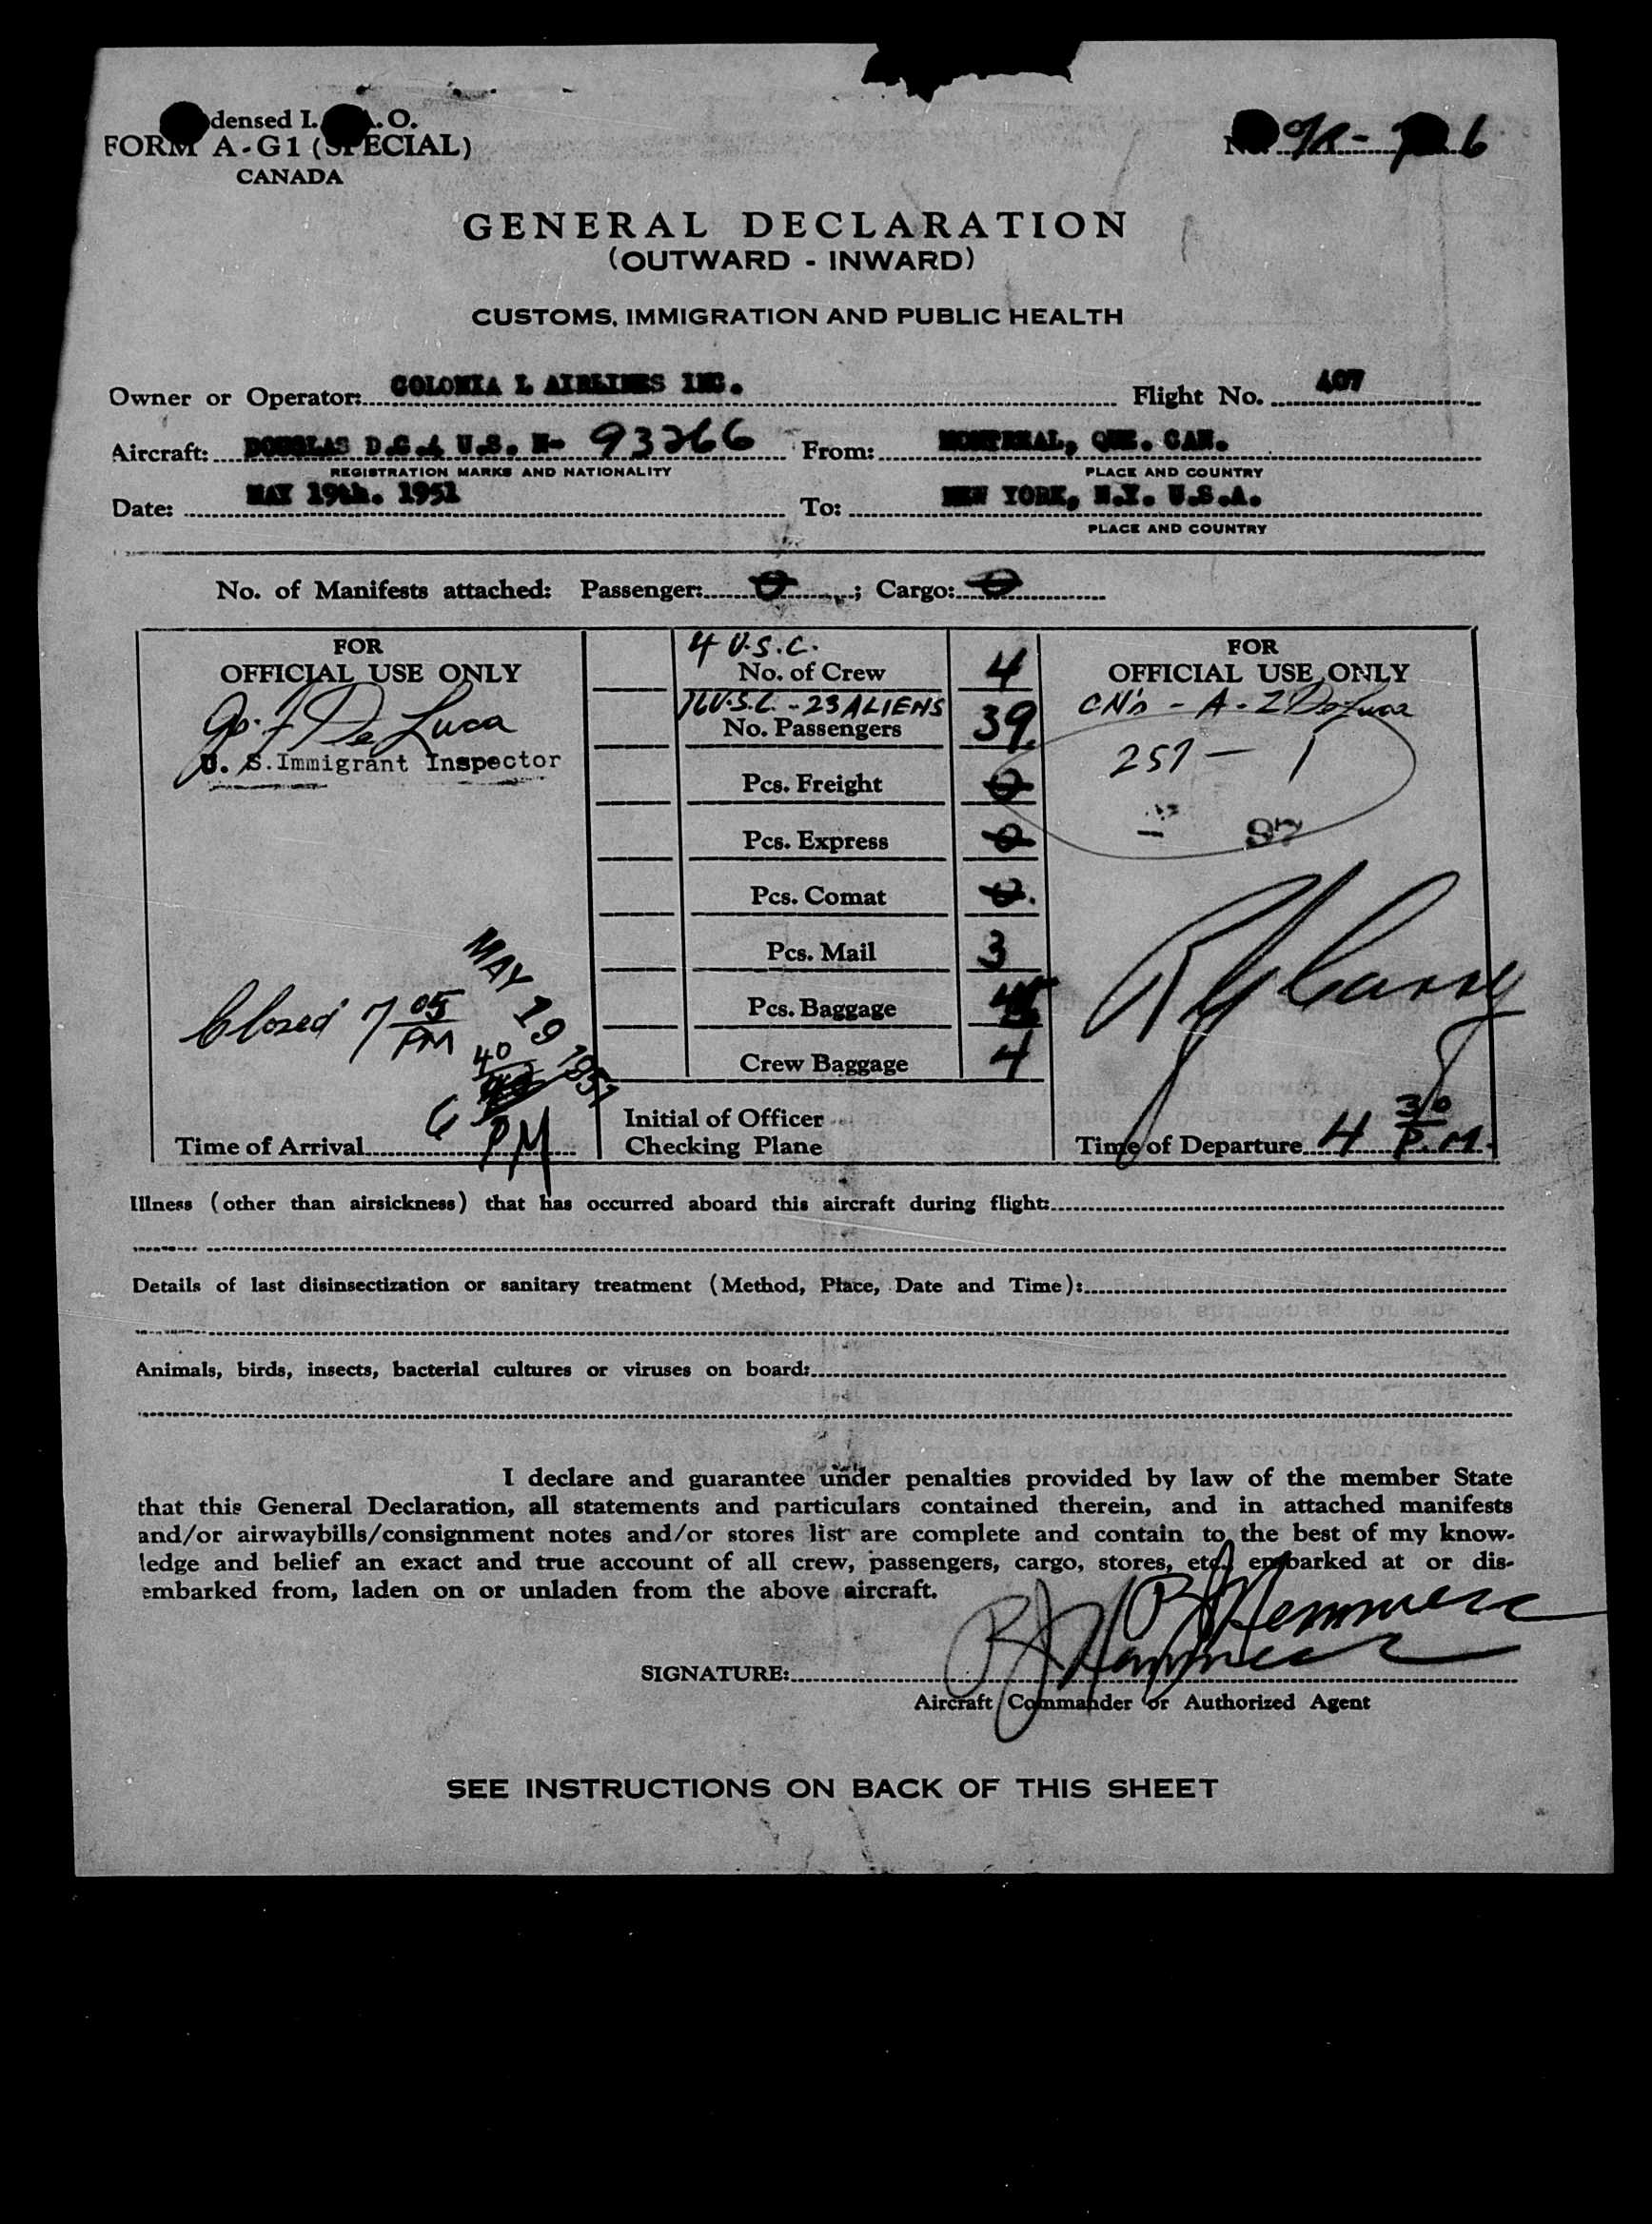 densed I. .O.
FORM A-G1 (SPECIAL)
CANADA
No. 6
GENERAL DECLARATION
(OUTWARD - INWARD)
CUSTOMS, IMMIGRATION AND PUBLIC HEALTH
Owner or Operator: COLONIA L AIRLINES INC. Flight No. 407
Aircraft: DOUGLAS D.C.4 U.S. N- 93266 From: MONTREAL, QUE. CAN.
REGISTRATION MARKS AND NATIONALITY PLACE AND COUNTRY
Date: MAY 19th. 1951 To: NEW YORK, N.Y. U.S.A.
PLACE AND COUNTRY
No. of Manifests attached: Passenger: 0 ; Cargo: 0
FOR
OFFICIAL USE ONLY
De Luca
U. S. Immigrant Inspector
Closed 7 05 PM
MAY 19 1951
Time of Arrival 6 40 PM
4 U.S.C.
No. of Crew 4
16 U.S.C. - 23 ALIENS
No. Passengers 39
Pcs. Freight 0
Pcs. Express 0
Pcs. Comat 0
Pcs. Mail 3
Pcs. Baggage
Crew Baggage 4
Initial of Officer
Checking Plane
FOR
OFFICIAL USE ONLY
CN's - A. Z DeLuca
257 - 1
- 97
Time of Departure 4 30 P.M.
Illness (other than airsickness) that has occurred aboard this aircraft during flight:
Details of last disinsectization or sanitary treatment (Method, Place, Date and Time):
Animals, birds, insects, bacterial cultures or viruses on board:
I declare and guarantee under penalties provided by law of the member State
that this General Declaration, all statements and particulars contained therein, and in attached manifests
and/or airwaybills/consignment notes and/or stores list are complete and contain to the best of my know-
ledge and belief an exact and true account of all crew, passengers, cargo, stores, etc., embarked at or dis-
embarked from, laden on or unladen from the above aircraft.
SIGNATURE:
Aircraft Commander or Authorized Agent
SEE INSTRUCTIONS ON BACK OF THIS SHEET